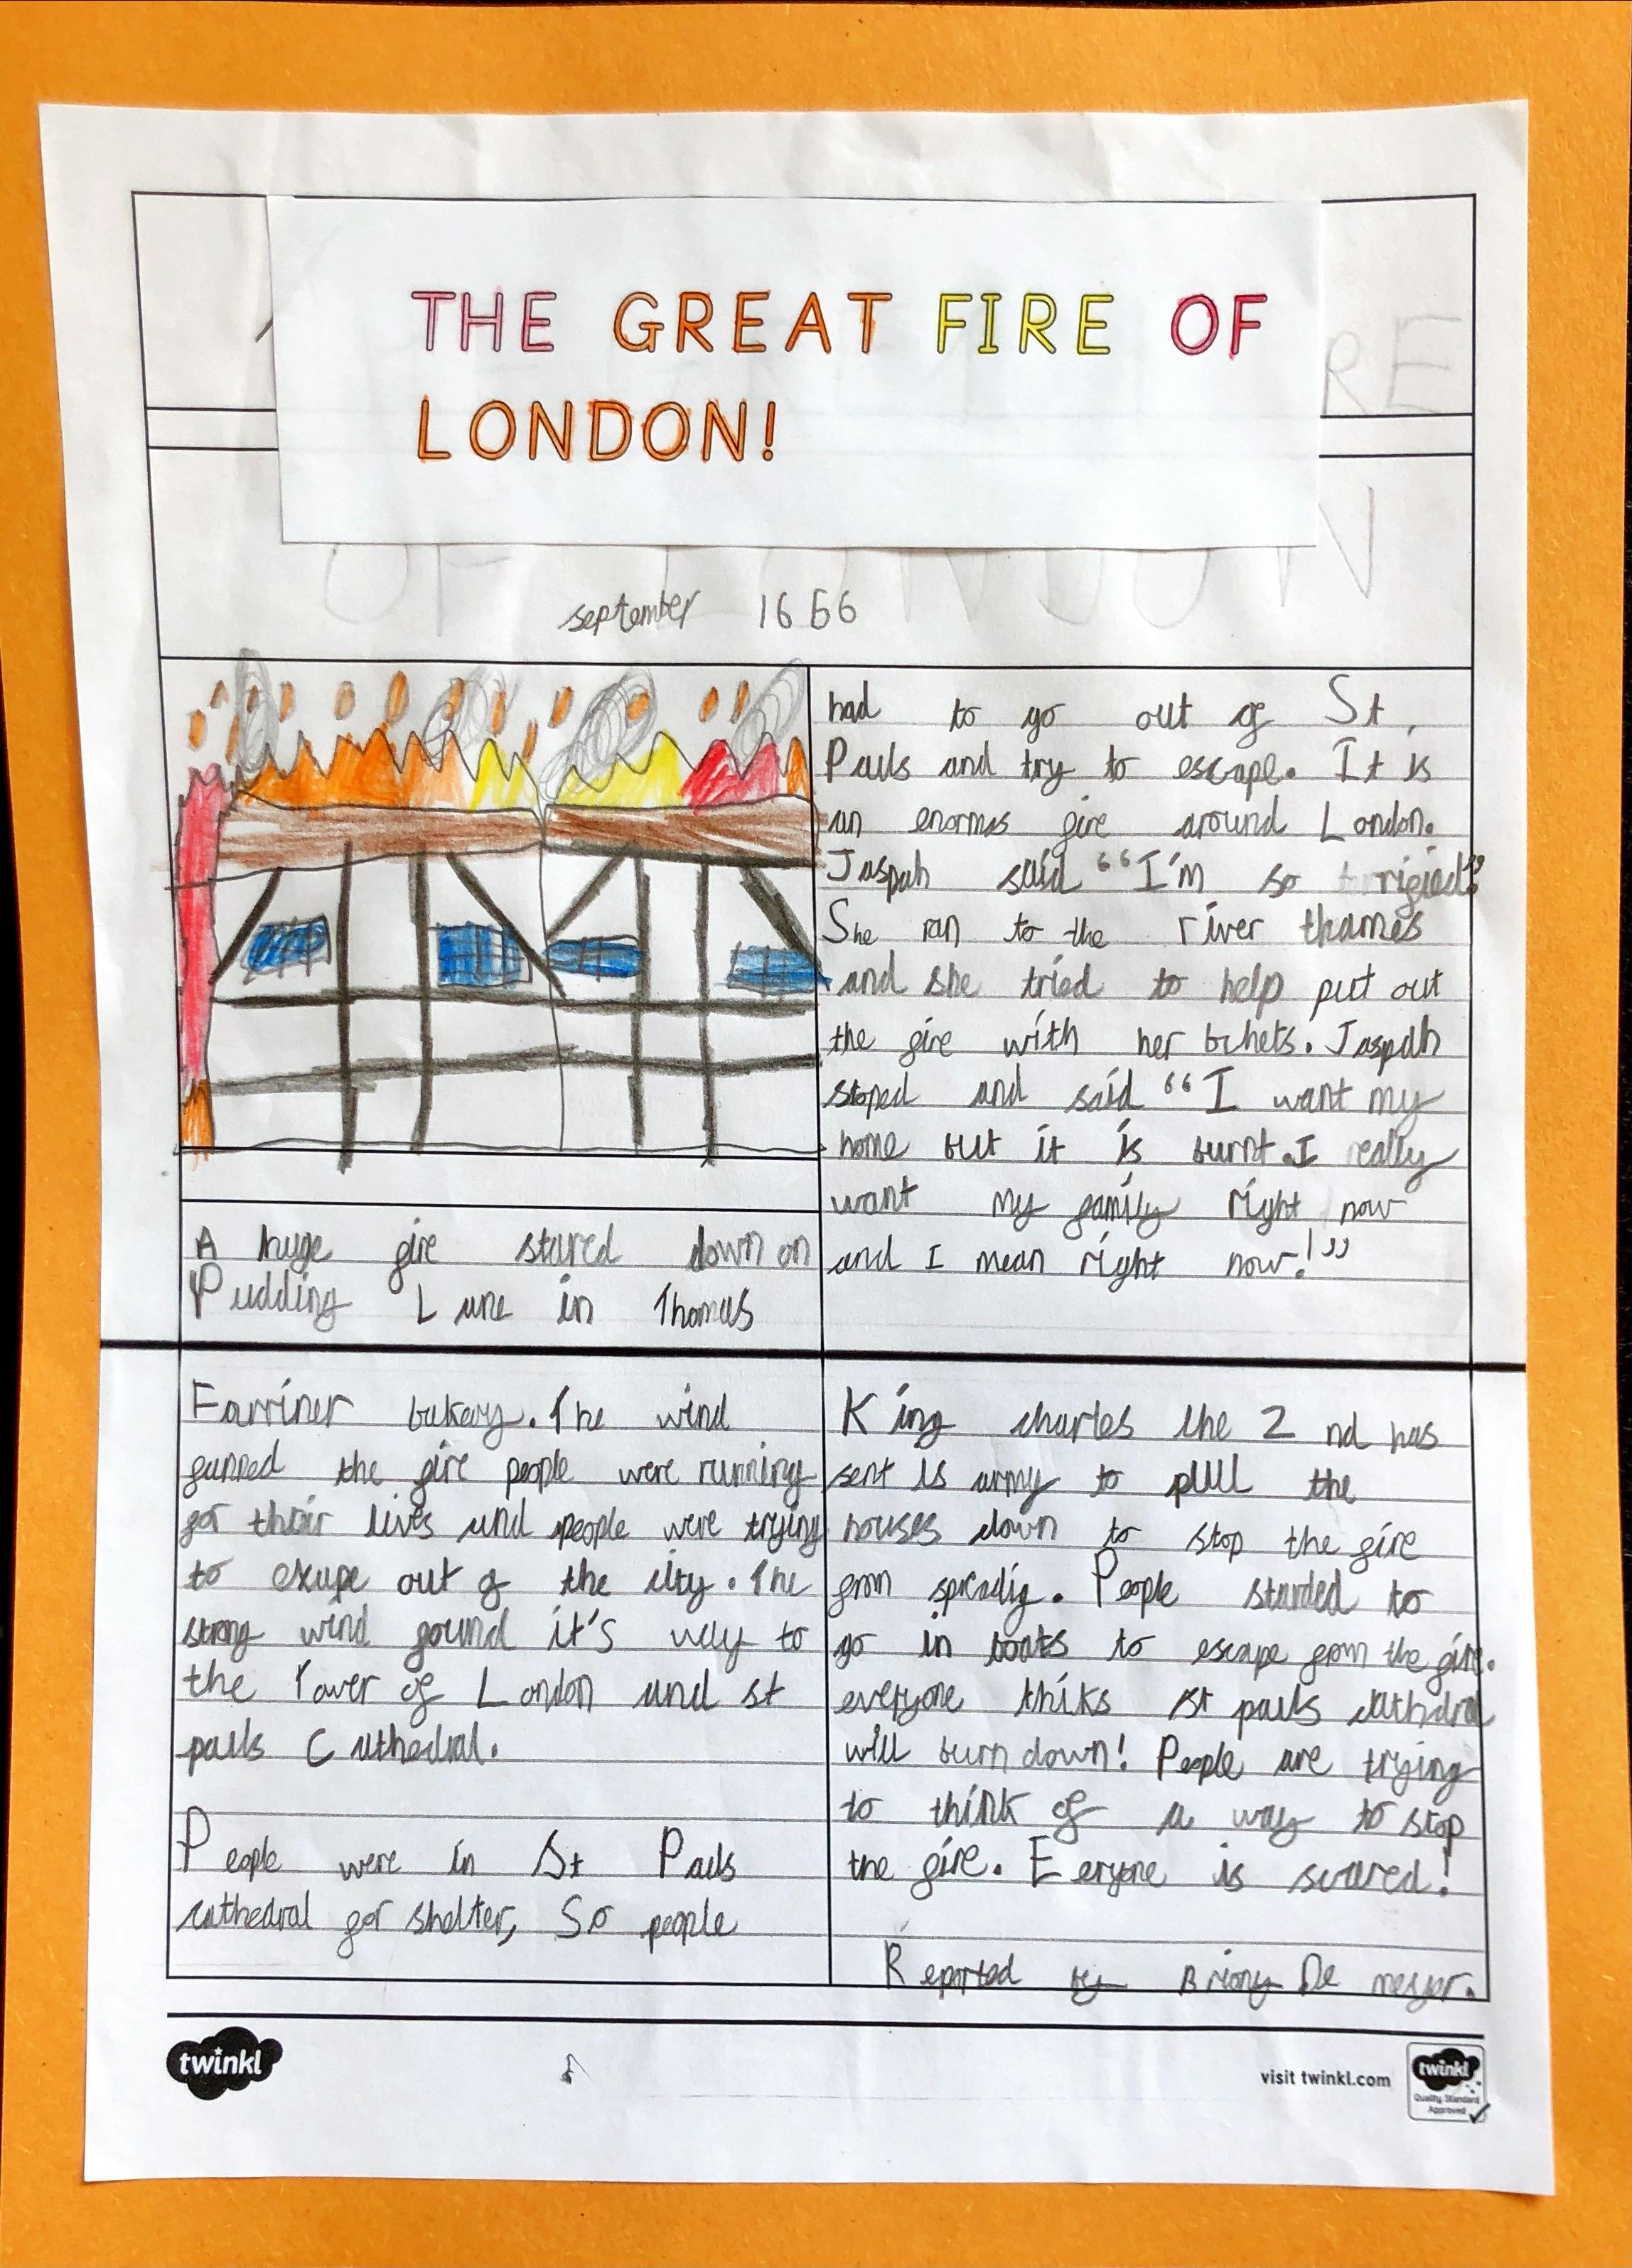 THE GREAT FIRE OF
LONDON!
RE
OF LONDON
september 1666
A huge fire stared down on
Pudding Lane in Thomas
Farriner bakary. The wind
fanned the fire people were running
for thair lives and people were trying
to excape out of the city. The
strong wind found it's way to
the Tower of London and st
palls Cathedral.
People were in St Pauls
cathedral for shelter, So people
had to go out of St.
Pauls and try to escape. It is
an enormas fire around London.
Jaspah said "I'm so terrified"
She ran to the river thames
and she tried to help put out
the fire with her bukets. Jaspah
stoped and said "I want my
home but it is burnt. I really
want my family right now
and I mean right now!"
King charles the 2 nd has
sent is army to pull the
houses down to stop the fire
from spreadig. People starded to
go in boats to escape from the fire.
everyone thiks st pauls cathdral
will burn down! People are trying
to think of a way to stop
the fire. Eeryone is scared!
Reported by Briony De meyer.
twinkl
visit twinkl.com
twinkl
Quality Standard
Approved